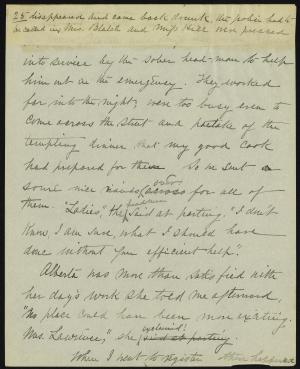 25 disappeared and came back drunk the police had to
be called in, Mrs. Blatch and Miss Hill were pressed
into service by the sober head-man to help
him out in the emergency. They worked
far into the night, were too busy even to
come across the street and partake of the
tempting dinner that my good cook
had prepared for them. So we sent a
some nice across for all of
them. "Ladies," the said at parting, "I don't
know, I am sure, what I should have
done without your efficient help".
Alberta was more than satisfied with
her day's work she told me afterward,
"No place could have been more exciting.
Mrs. Lawrence," she said at parting.
When I went to register